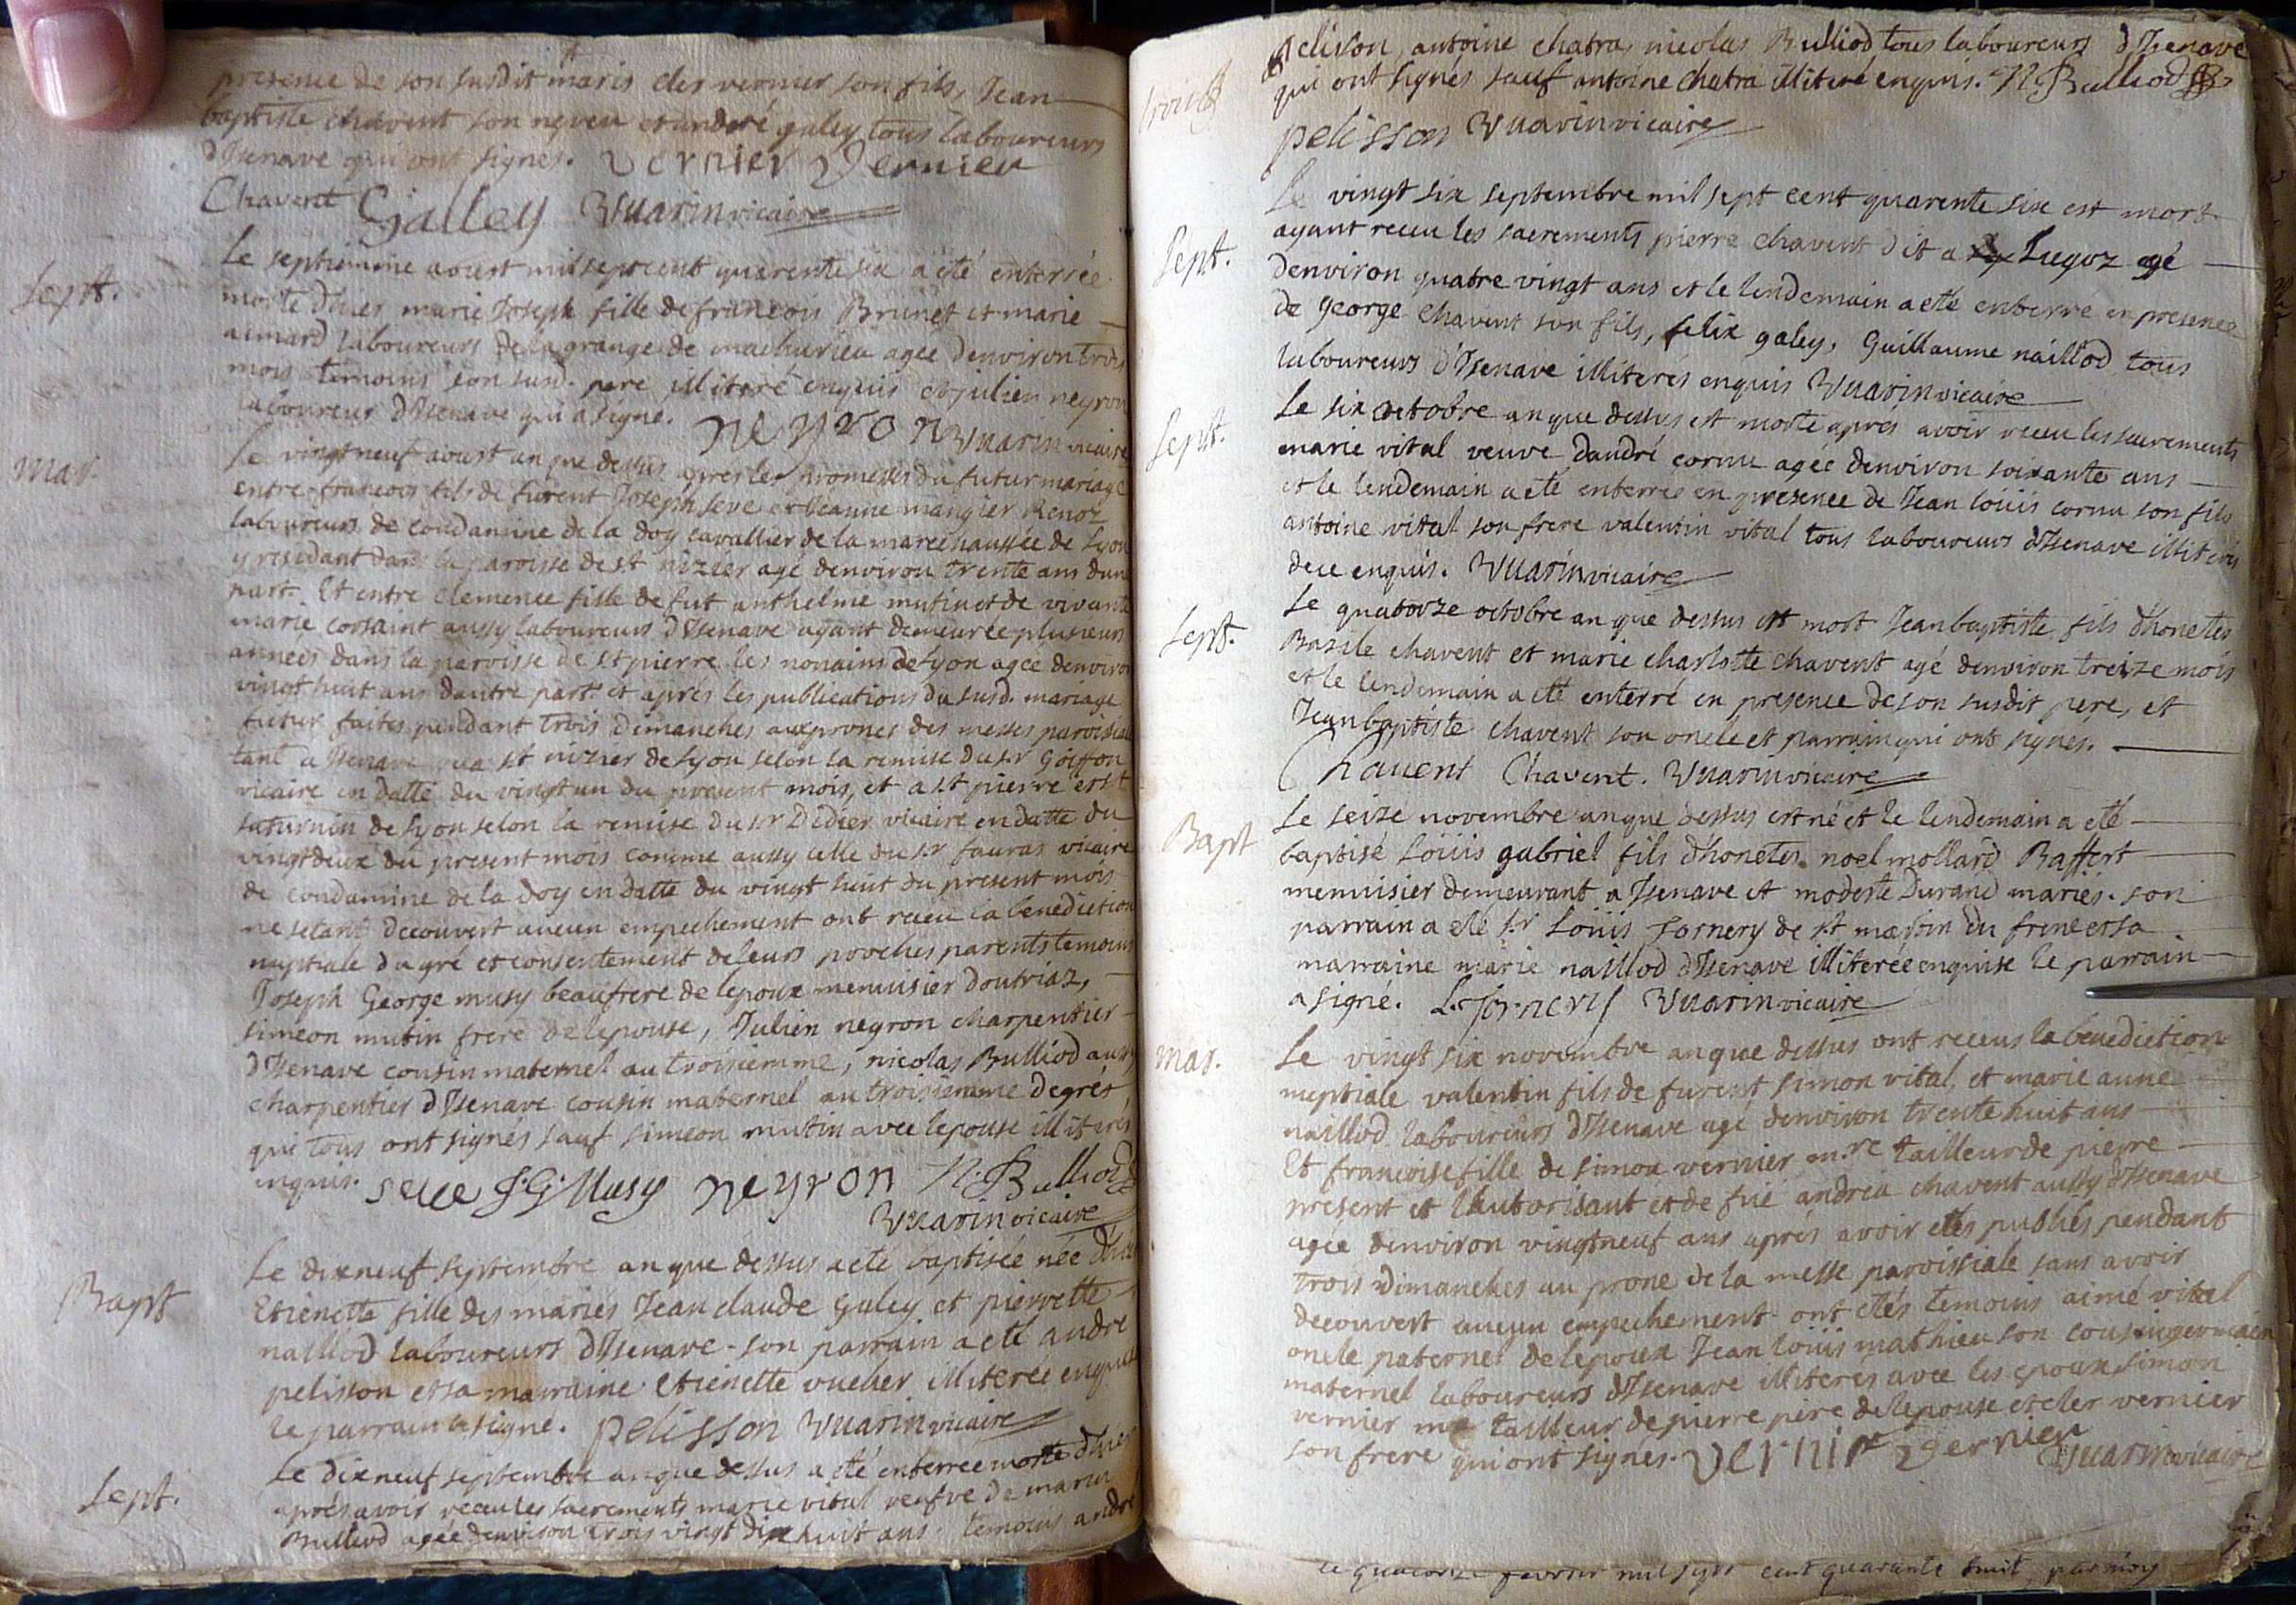 presence de son susdit maris cler vernier son fils, Jean
baptiste chavent son neveu et andré galey tous laboureurs
d'Isenave qui ont signés. vernier Vernier
Chavent Galley Vuarin vicaire
Sept.
Le septiemme aoust mil sept cent quarente six a eté enterrée
morte d'hier marie Joseph fille de francois Brunet et marie
aimard laboureurs de la grange de machurieu agée denviron trois
mois temoins son susd. pere illiteré enquis et julien neyron
laboureur d'Isenave qui a signé. neyron Vuarin vicaire
mar.
Le vingt neuf aoust an que dessus apres les promesses du futur mariage
entre francois fils de furent Joseph seve et Jeanne mangier Renoz
laboureurs de condamine de la doy cavallier de la marechaussée de Lyon
y residant dans la paroisse de st nizier agé denviron trente ans dune
part. Et entre clemence fille de fut anthelme mutin et de vivante
marie corsaint aussy laboureurs d'Isenave ayant demeurée plusieurs
années dans la paroisse de st pierre les nonains de Lyon agée denviron
vingt huit ans dautre part et aprés les publications du susd. mariage
futur faites pendant trois dimanches aux prones des messes paroissiales
tant a Isenave qua st nizier de Lyon selon la remise du sr Goiffon
vicaire en datte du vingt un du present mois, et a st pierre et st
saturnin de Lyon selon la remise du sr Didier vicaire en datte du
vingt deux du present mois comme aussy celle du sr fauras vicaire
de condamine de la doy en datte du vingt huit du present mois
ne setant decouvert aucun empechement ont receu la benediction
nuptiale du gré et consentement de leurs proches parents temoins
Joseph George musy beaufrere de lepoux menuisier doutriaz,
simeon mutin frere de lepouse, Julien neyron charpentier
d'Isenave cousin maternel au troisiemme, nicolas Bulliod aussy
charpentier d'Isenave cousin maternel au troisiemme degrés,
qui tous ont signés sauf simeon mutin avec lepouse illiterés
enquis. seve J. G. Musy neyron N. Bulliod
Vuarin vicaire
Bapt
Le dixneuf septembre an que dessus a eté baptisée née d'hier
Etienette fille des mariés Jean claude galey et pierrette
naillod laboureurs d'Isenave. son parrain a eté andré
pelisson et sa marraine Etienette vucher illiterée enquise
le parrain a signé. pelisson Vuarin vicaire
Sept.
Le dixneuf septembre an que dessus a eté enterrée morte d'hier
aprés avoir receu les sacrements marie vital veufve de marin
Bulliod agée denviron trois vingt dix huit ans. temoins andré
pelison, antoine chatra, nicolas Bulliod tous laboureurs d'Isenave
qui ont signés sauf antoine chatra illiteré enquis. N. Bulliod
pelisson Vuarin vicaire
Sept.
Le vingt six septembre mil sept cent quarente six est mort
ayant receu les sacrements pierre chavent dit a Lugoz agé
denviron quatre vingt ans et le lendemain a eté enterré en presence
de george chavent son fils, felix galey, Guillaume naillod tous
laboureurs d'Isenave illiterés enquis Vuarin vicaire
Sept.
Le six octobre an que dessus est morte aprés avoir receu les sacrements
marie vital veuve dandré cornu agée denviron soixante ans
et le lendemain a eté enterrée en presence de Jean louis cornu son fils
antoine vital son frere valentin vital tous laboureurs d'Isenave illiterés
de ce enquis. Vuarin vicaire
Sept.
Le quatorze octobre an que dessus est mort Jean baptiste fils d'honetes
Bazile chavent et marie charlotte chavent agé denviron treize mois
et le lendemain a eté enterré en presence de son susdit pere, et
Jean baptiste chavent son oncle et parrain qui ont signés.
Chavent Chavent. Vuarin vicaire
Bapt
Le seize novembre an que dessus est né et le lendemain a eté
baptisé Loüis gabriel fils d'honetes noel mollard Baffert
menuisier demeurant a Isenave et modeste Durand mariés. son
parrain a eté sr Loüis Jornery de st martin du frene et sa
marraine marie naillod d'Isenave illiterée enquise le parrain
a signé. L. Jornery Vuarin vicaire
mar.
Le vingt six novembre an que dessus ont receus la benediction
nuptiale valentin fils de furent simon vital, et marie anne
naillod laboureurs d'Isenave agé denviron trente huit ans
Et francoise fille de simon vernier m.re tailleur de pierre
present et l'autorisant et de fue andrea chavent aussy d'Isenave
agée denviron vingt neuf ans aprés avoir etés publiés pendant
trois dimanches au prone de la messe paroissiale sans avoir
decouvert aucun empechement ont etés temoins aimé vital
oncle paternel de lepoux Jean loüis mathieu son cousin germain
maternel laboureurs d'Isenave illiterés avec les epoux simon
vernier me tailleur de pierre pere de lepouse et cler vernier
son frere qui ont signés. vernier vernier Vuarin vicaire
le quatorze fevrier mil sept cent quarante huit par moy